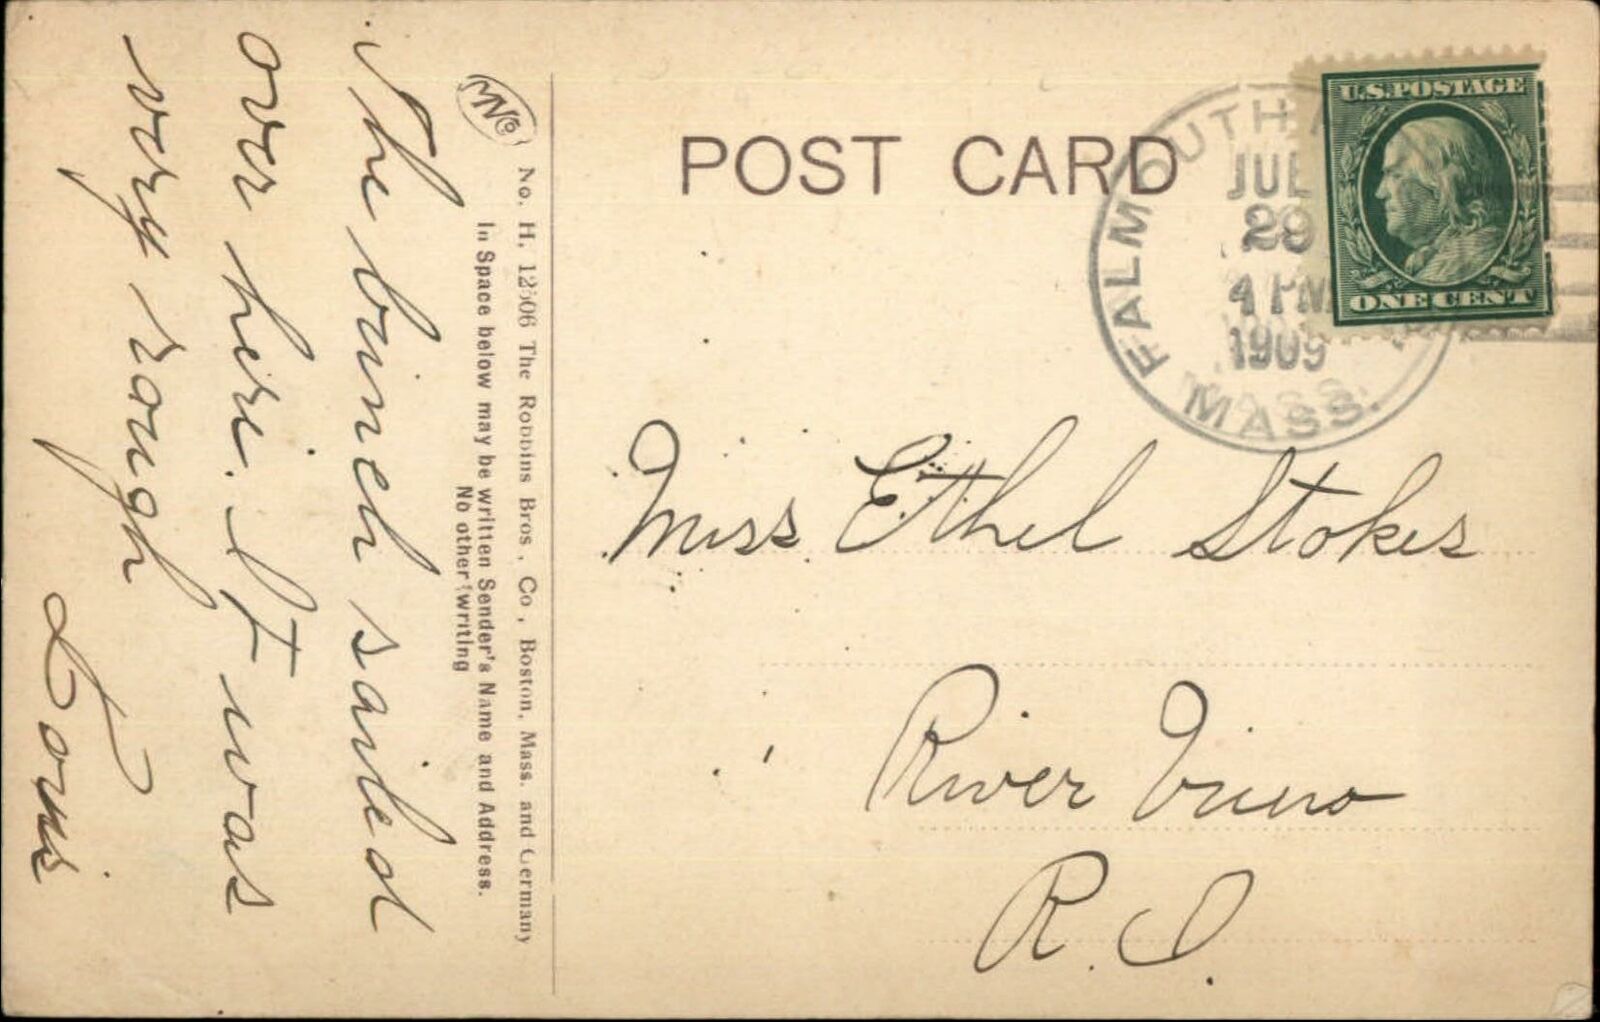 The bunch sailed
over here. It was
very rough
Louis
MN Co
No. H. 12506 The Robbins Bros., Co., Boston, Mass. and Germany
In Space below may be written Sender's Name and Address.
No other writing
POST CARD
FALMOUTH
JUL
29
4 PM
1909
MASS.
U.S. POSTAGE
ONE CENT
Miss Ethel Stokes
River View
R.I.